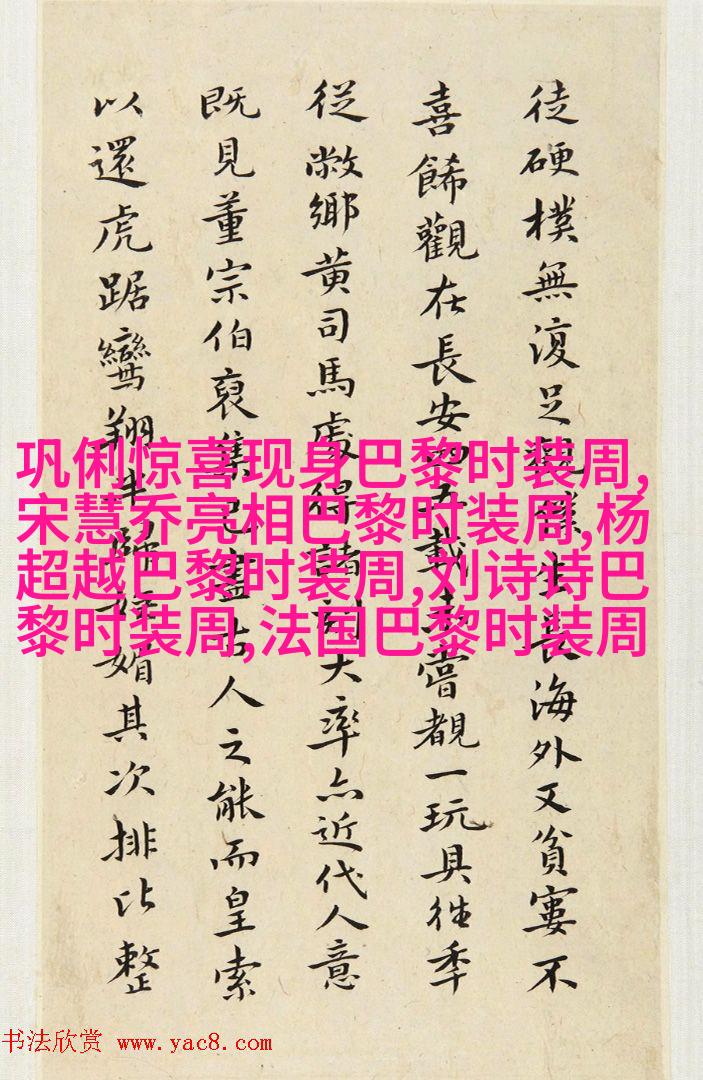 徒硬樸無復足觀僕生長海外又貧窶不
喜餙觀在長安四五載未嘗覩一玩具往季
從敝鄉黃司馬處得諸刻大率亦近代人意
既見董宗伯裒集已盡古人之能而皇索
以還虎踞鸞翔媚其次排比整
巩俐惊喜现身巴黎时装周,
宋慧乔亮相巴黎时装周,杨
超越巴黎时装周,刘诗诗巴
黎时装周,法国巴黎时装周
书法欣赏 www.yac8.com